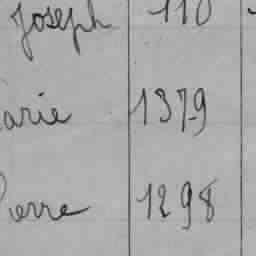 Joseph 110
arie 1379
ierre 1298